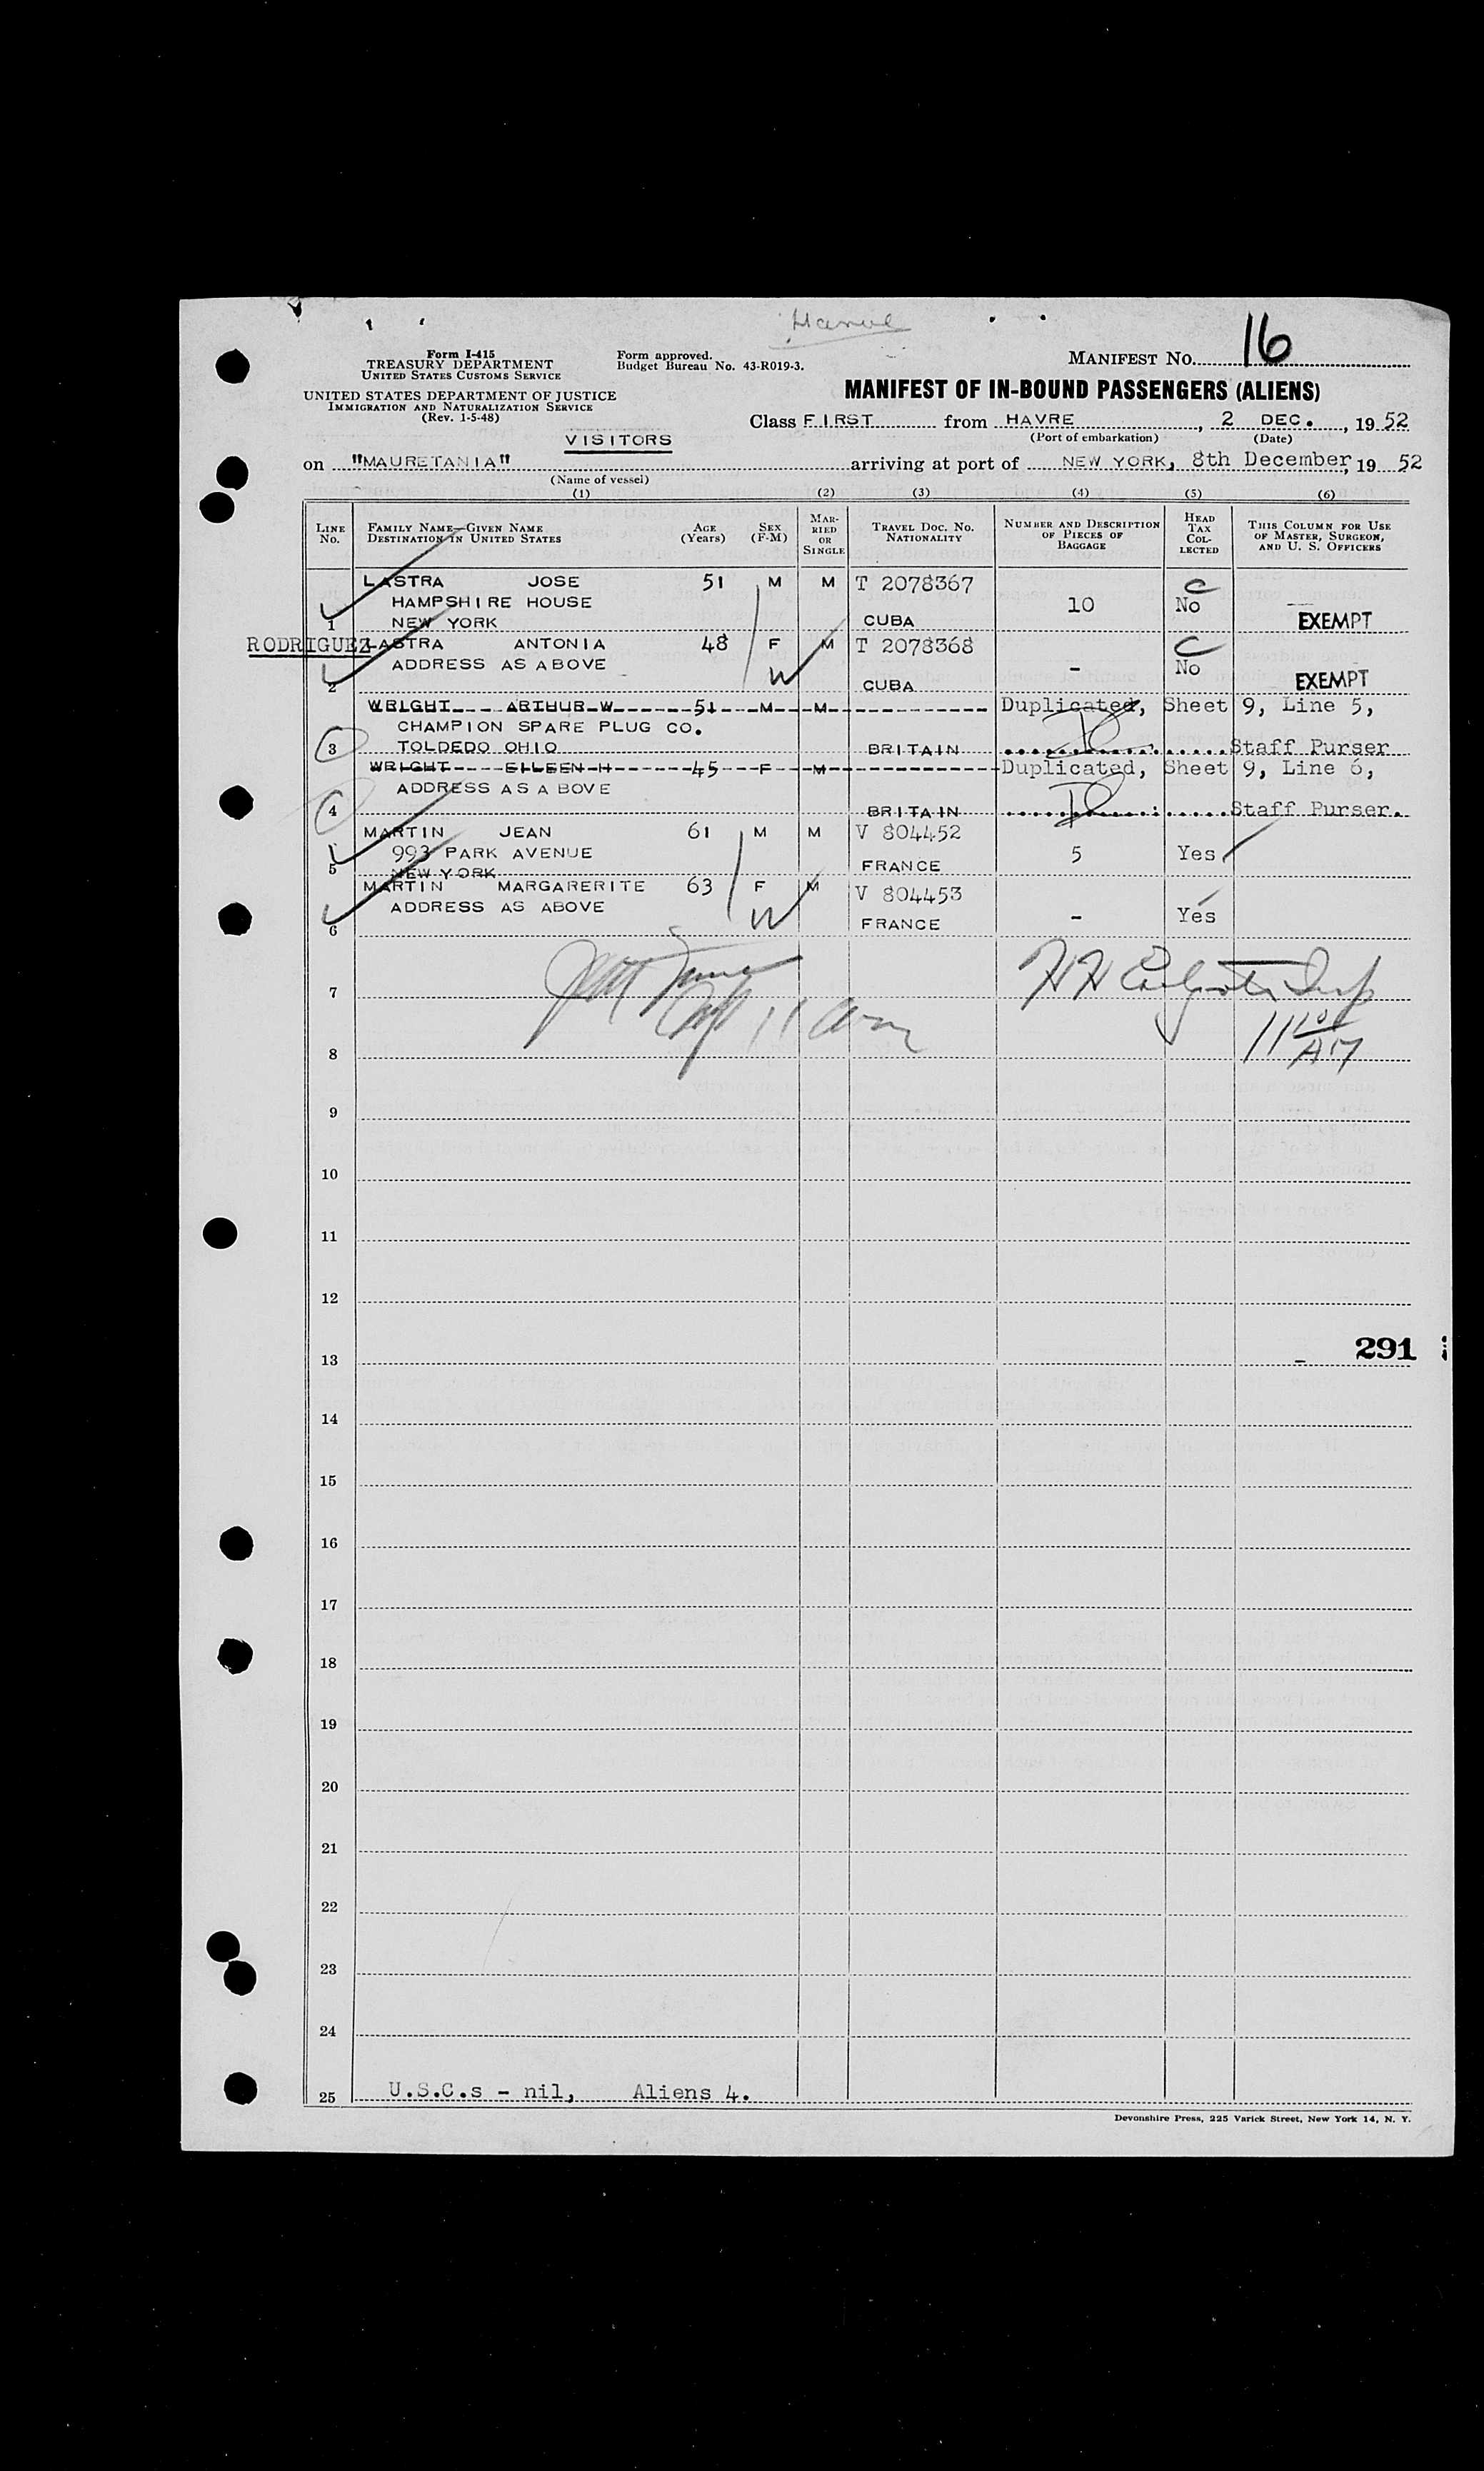 Havre
Form I-415
TREASURY DEPARTMENT
UNITED STATES CUSTOMS SERVICE
UNITED STATES DEPARTMENT OF JUSTICE
IMMIGRATION AND NATURALIZATION SERVICE
(Rev. 1-5-48)
Form approved.
Budget Bureau No. 43-R019-3.
MANIFEST NO. 16
MANIFEST OF IN-BOUND PASSENGERS (ALIENS)
Class FIRST from HAVRE, 2 DEC., 19 52
(Port of embarkation) (Date)
VISITORS
on "MAURETANIA" arriving at port of NEW YORK, 8th December, 19 52
(Name of vessel)
(1) (2) (3) (4) (5) (6)
LINE No. FAMILY NAME—GIVEN NAME DESTINATION IN UNITED STATES AGE (Years) SEX (F-M) MARRIED OR SINGLE TRAVEL DOC. NO. NATIONALITY NUMBER AND DESCRIPTION OF PIECES OF BAGGAGE HEAD TAX COLLECTED THIS COLUMN FOR USE OF MASTER, SURGEON, AND U. S. OFFICERS
LASTRA JOSE 51 M M T 2078367 C
HAMPSHIRE HOUSE 10 No
1 NEW YORK CUBA EXEMPT
RODRIGUEZ LASTRA ANTONIA 48 F M T 2078368 C
ADDRESS AS ABOVE W - No
2 CUBA EXEMPT
WRIGHT ARTHUR W 51 M M Duplicated, Sheet 9, Line 5,
CHAMPION SPARE PLUG CO.
3 TOLDEDO OHIO BRITAIN Staff Purser
WRIGHT EILEEN H 45 F M Duplicated, Sheet 9, Line 6,
ADDRESS AS A BOVE
4 BRITAIN Staff Purser.
MARTIN JEAN 61 M M V 804452
993 PARK AVENUE 5 Yes
5 NEW YORK FRANCE
MARTIN MARGARERITE 63 F M V 804453
ADDRESS AS ABOVE W - Yes
6 FRANCE
7
11 am
11 10 AM
8
9
10
11
12
291
13
14
15
16
17
18
19
20
21
22
23
24
25 U.S.C.s - nil, Aliens 4.
Devonshire Press, 225 Varick Street, New York 14, N. Y.